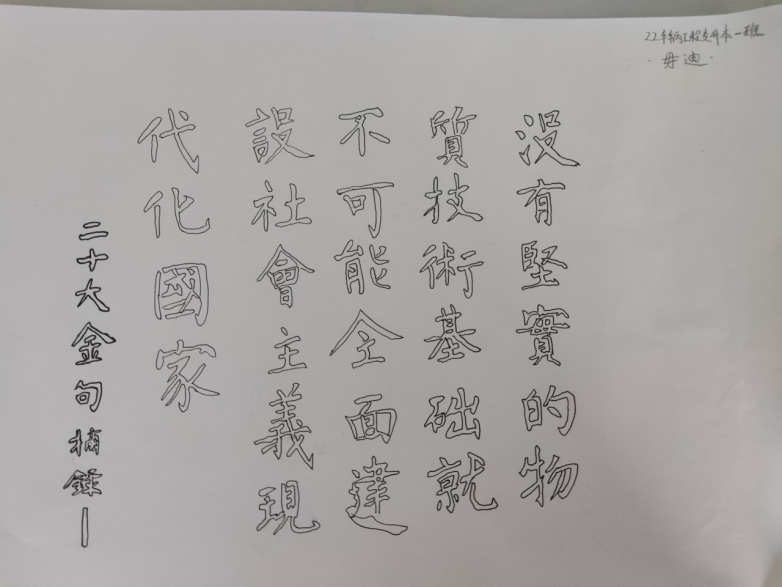 22车辆工程专升本一班
·毋迪·
没有堅實的物
質技術基础就
不可能全面建
設社會主義現
代化國家
二十大金句摘錄—